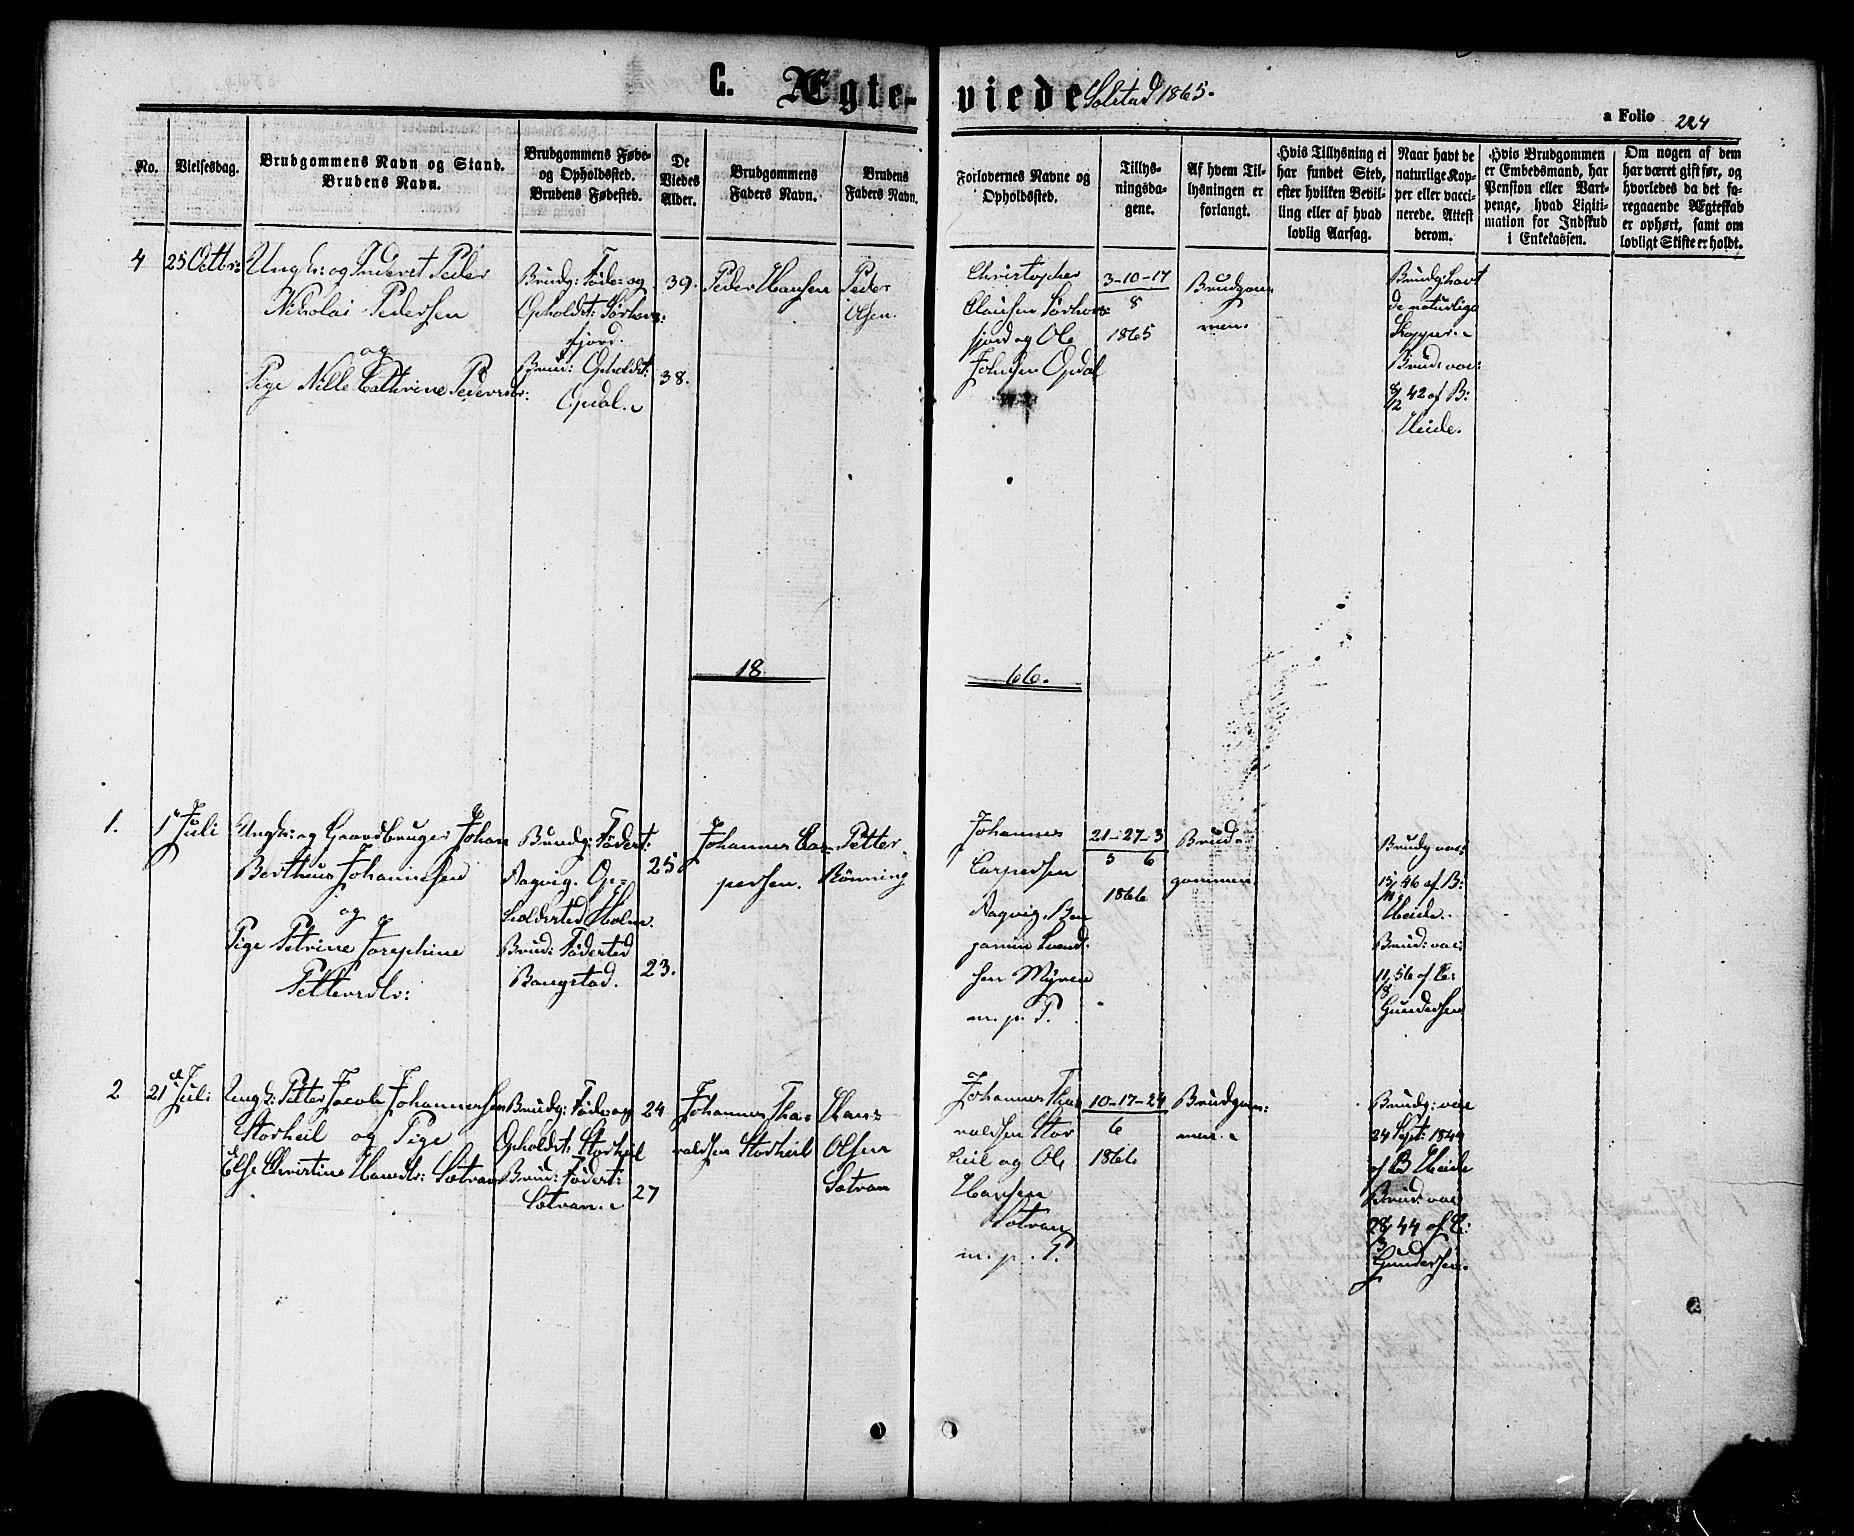 C. Ægte-viede Solstad 1865.
a Folio 224
No.
Vielsesdag.
Brudgommens Navn og Stand.
Brudens Navn.
Brudgommens Føde-
og Opholdssted.
Brudens Fødested.
De
Viedes
Alder.
Brudgommens
Faders Navn.
Brudens
Faders Navn.
Forlovernes Navne og
Opholdssted.
Tillys-
ningsda-
gene.
Af hvem Til-
lysningen er
forlangt.
Hvis Tillysning ei
har fundet Sted,
efter hvilken Bevil-
ling eller af hvad
lovlig Aarsag.
Naar havt de
naturlige Kop-
per eller vacci-
nerede. Attest
derom.
Hvis Brudgommen
er Embedsmand, har
Pension eller Vart-
penge, hvad Ligiti-
mation for Indskud
i Enkekassen.
Om nogen af dem
har været gift før, og
hvorledes da det fo-
regaaende Ægteskab
er ophørt, samt om
lovligt Skifte er holdt.
4
25 Octbr:
Ungk: og Inderst Peder
Nikolai Pedersen
og
Pige Nille Cathrine Pedersdtr:
Brudg: Føde: og
Opholdst: Sørhorn:
fjord.
Brud: Opholdst:
Opdal.
39.
38.
Peder Hansen
Peder
Olsen.
Christopher
Clausen Sørhorn:
fjord og Ole
Johnsen Opdal
3-10-17
8
1865
Brudgom
men.
Brudg: havt
de naturlige
Kopper.
Brud: vac:
8/12 42 af B:
Heide.
18
66.
1.
1 Juli
Ungk: og Gaardbruger Johan
Bertheus Johannesen
og
Pige Petrine Josephine
Pettersdtr:
Brudg: Fødest:
Aagvig. Op-
holdssted Holm.
Brud: Fødested
Bangstad.
25
23.
Johannes Cas-
persen.
Petter
Rönning
Johannes
Caspersen
Aagvig. Ben
jamin Svend:
sen Myren
m. p. P.
21-27-3
5 6
1866
Brud-
gommen
Brudg vac:
15/11 46 af B:
Heide.
Brud: vac:
11/8 56 af C:
Gundersen
2
21 Juli
Ungk: Petter Jacob Johannesen
Storheil og Pige
Else Christine Hansdtr: Sötvan
Brudg: Føde og
Opholdst: Storheil
Brud: Fødest:
Sötvan.
24
27
Johannes Tha-
raldsen Storheil
Hans
Olsen
Sötvan
Johannes Tha
raldsen Stor
heil og Ole
Hansen
Sötvan
m. p. P.
10-17-24
6
1866
Brudgom:
men.
Brudg: vac
24 Sept: 1844
af B Heide
Brud: vac
28/3 44 af C:
Gundersen.